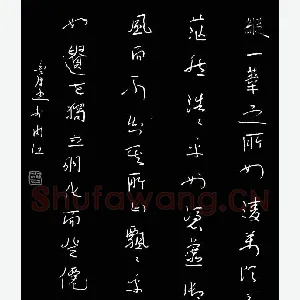 縱一葦之所如凌萬頃之
茫然浩〻乎如馮虛御
風而不知其所止飄〻乎
如遺世獨立羽化而登僊
Shufawang.CN